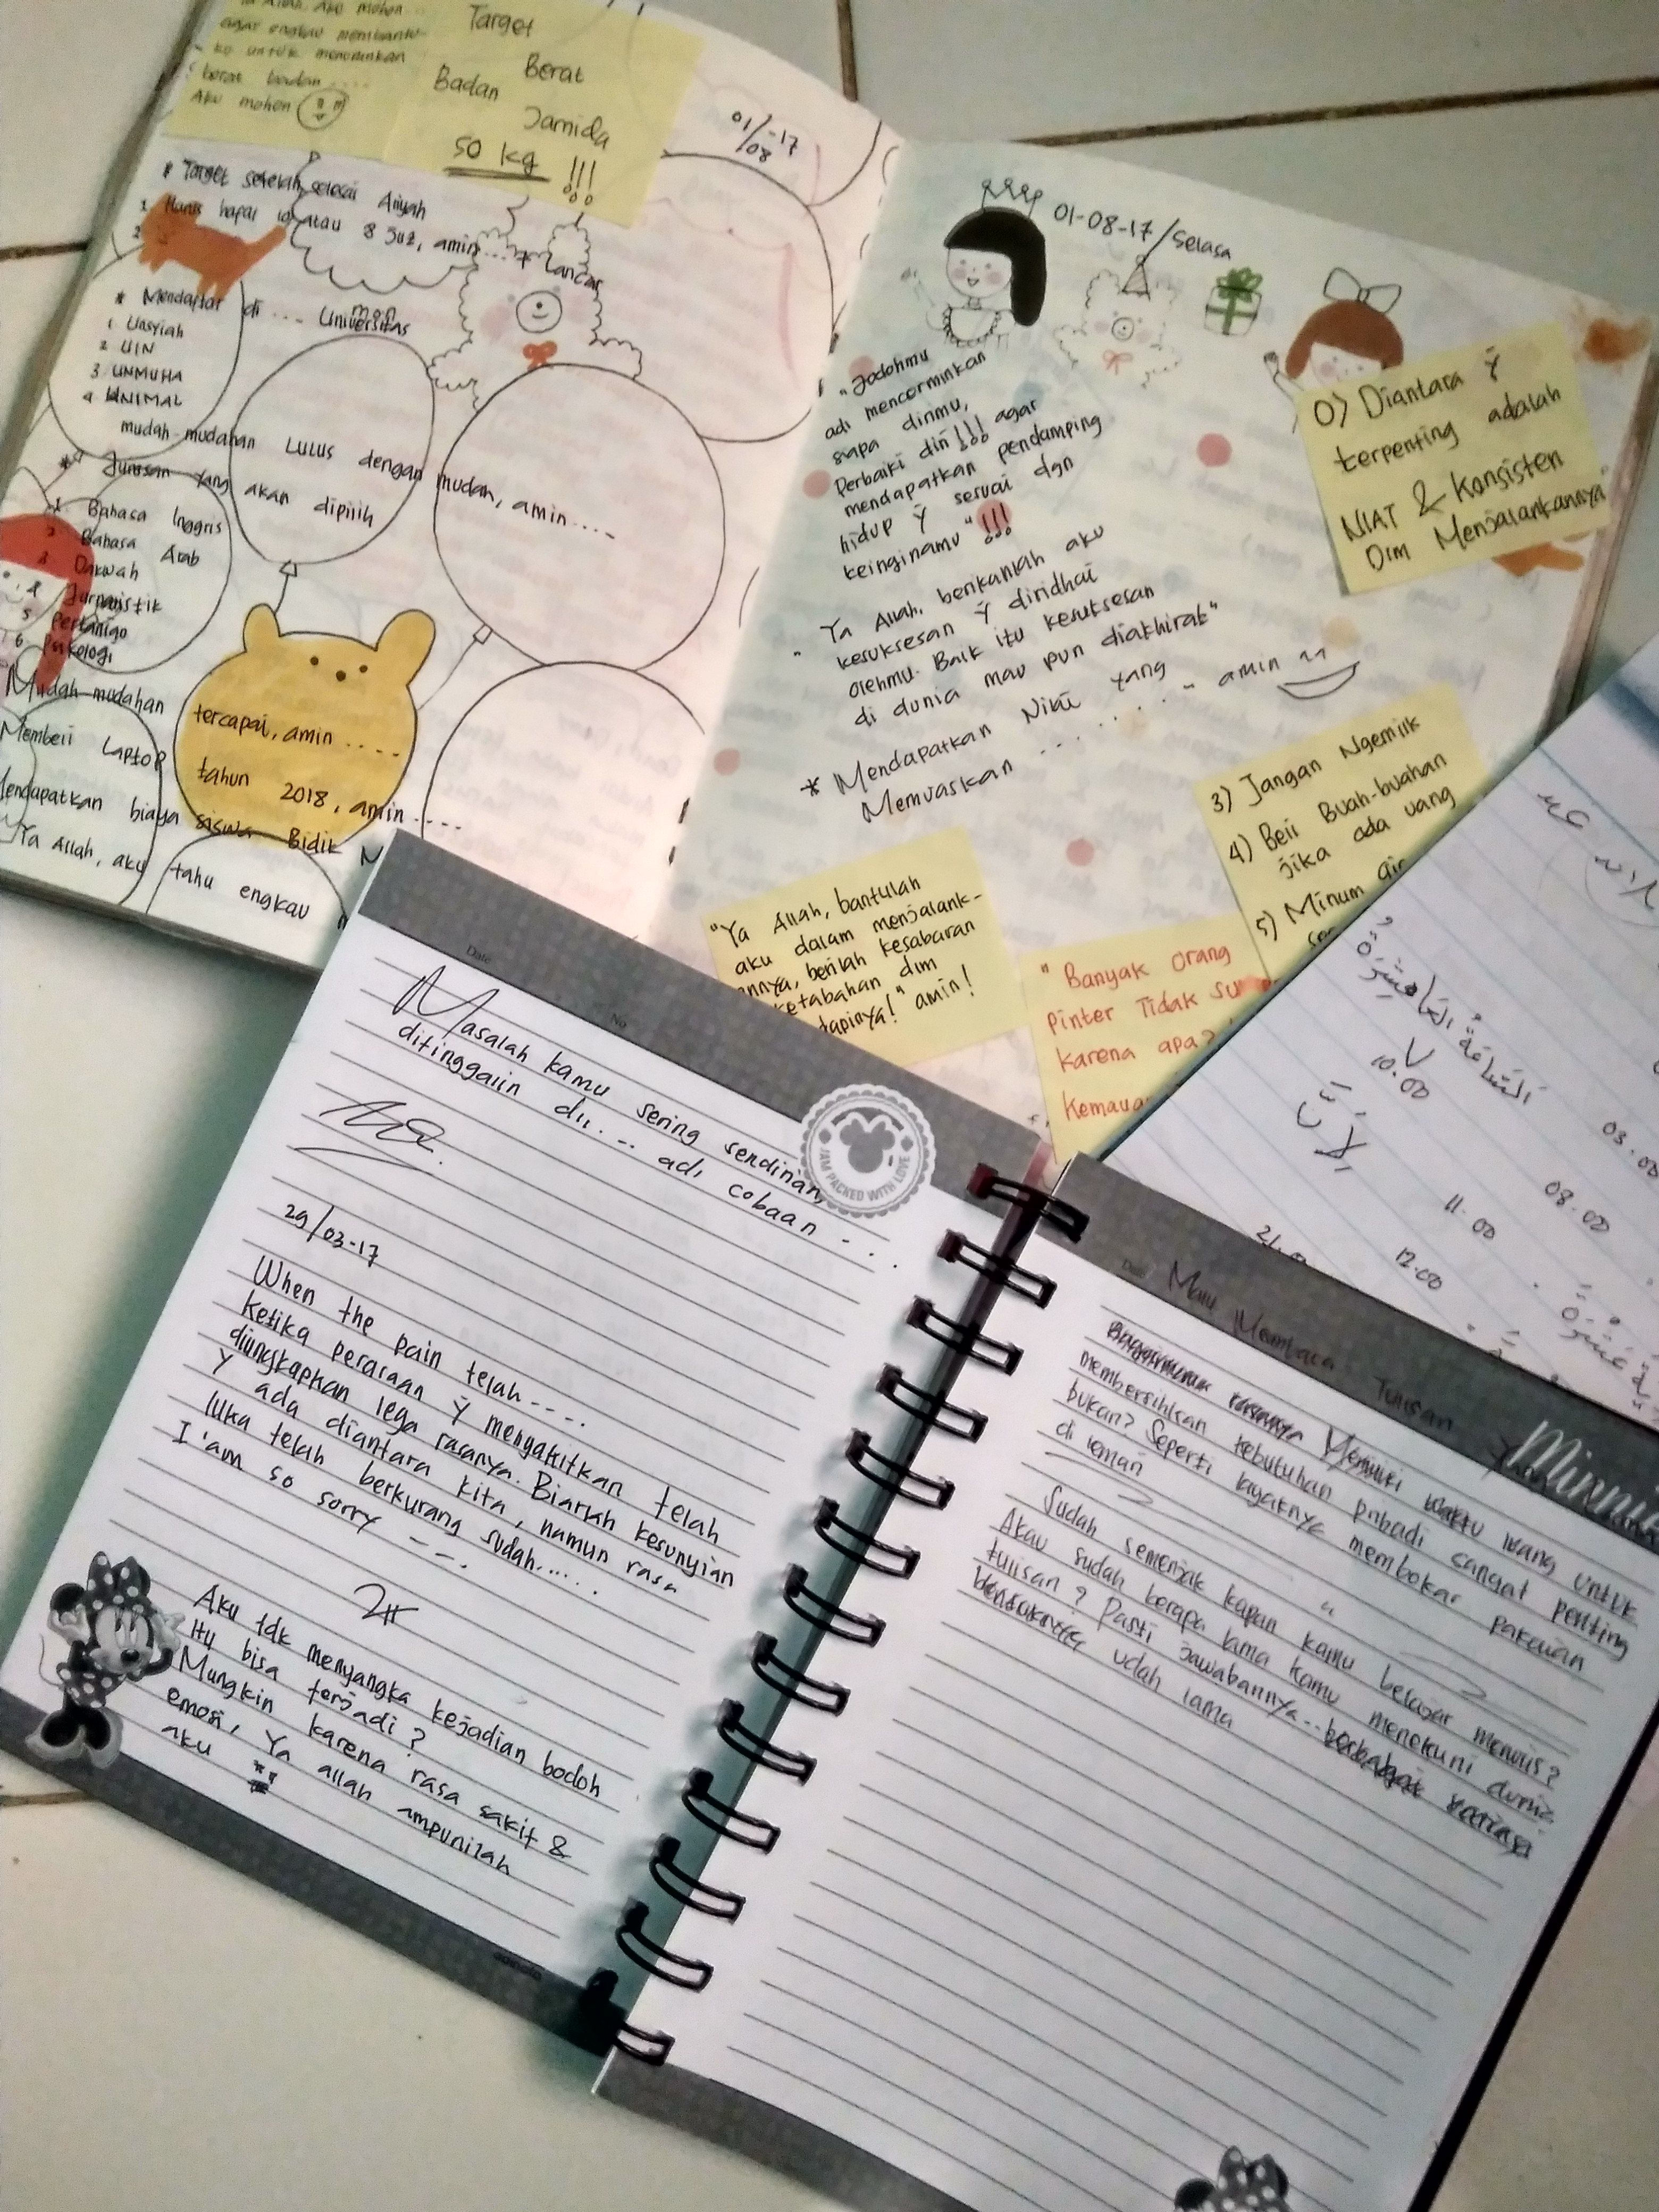 agar engkau membantu
ku untuk menaikkan
berat badan ....
Aku mohon
Target
Berat
Badan
Jamida
50 kg !!!
01/08-17
* Target setelah selesai Aliyah
1 Harus hapal 10 atau 8 Juz, amin.... + Lancar
2
* Mendaftar di .... Universitas
1 Unsyiah
2 UIN
3 UNMUHA
4 UNIMAL
mudah-mudahan LULUS dengan mudah, amin....
* Jurusan yang akan dipilih
1 Bahasa Inggris
2 Bahasa Arab
3 Dakwah
4 Jurnalistik
5
6 Psikologi
Mudah-mudahan tercapai, amin ....
Membeli Laptop tahun 2018, amin ....
Mendapatkan biaya siswa Bidik M
Ya Allah, aku tahu engkau
01-08-17/Selasa
"Jodohmu
adl mencerminkan
siapa dirimu,
Perbaiki diri!!! agar
mendapatkan pendamping
hidup ȳ sesuai dgn
keinginamu" !!!
"Ya Allah, berikanlah aku
kesuksesan ȳ diridhai
olehmu. Baik itu kesuksesan
di dunia mau pun diakhirat"
* Mendapatkan Nilai yang
Memuaskan ........ amin
0) Diantara ȳ
terpenting adalah
NIAT & Konsisten
Dlm Menjalankannya
3) Jangan Ngemilk
4) Beli Buah-buahan
jika ada uang
5) Minum air
"Ya Allah, bantulah
aku dalam menjalank-
annya, berilah kesabaran
ketabahan dlm
dapinya!" amin!
"Banyak orang
pinter Tidak su
karena apa?
Kemaua
السَّاعَةُ العَاشِرَةُ
10.00
03.00
08.00
11.00
12.00
Date
No
Masalah kamu sering sendirian,
ditinggalin dll.... adl cobaan ...
I AM PACKED WITH LOVE
29/03-17
When the pain telah....
Ketika perasaan ȳ menyakitkan telah
diungkapkan lega rasanya. Biarlah kesunyian
ȳ ada diantara kita, namun rasa
luka telah berkurang sudah.....
I'am so sorry ---.
Aku tdk menyangka kejadian bodoh
itu bisa terjadi?
Mungkin karena rasa sakit &
emosi, Ya allah ampunilah
aku
Date
Malu Membaca Tulisan
Minnie
Memiliki waktu luang untuk
membersihkan kebutuhan pribadi sangat penting
bukan? Seperti layaknya membokar pakaian
di lemari
Sudah semenjak kapan kamu belajar menulis?
Akau sudah berapa lama kamu menekuni dunia
tulisan? Pasti jawabannya...
udah lama